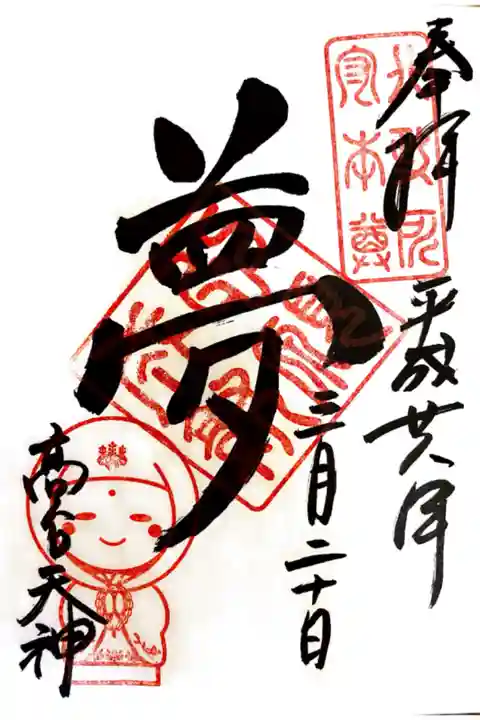 奉拝
平成廿八年
三月二十日
本尊
夢
高台天神